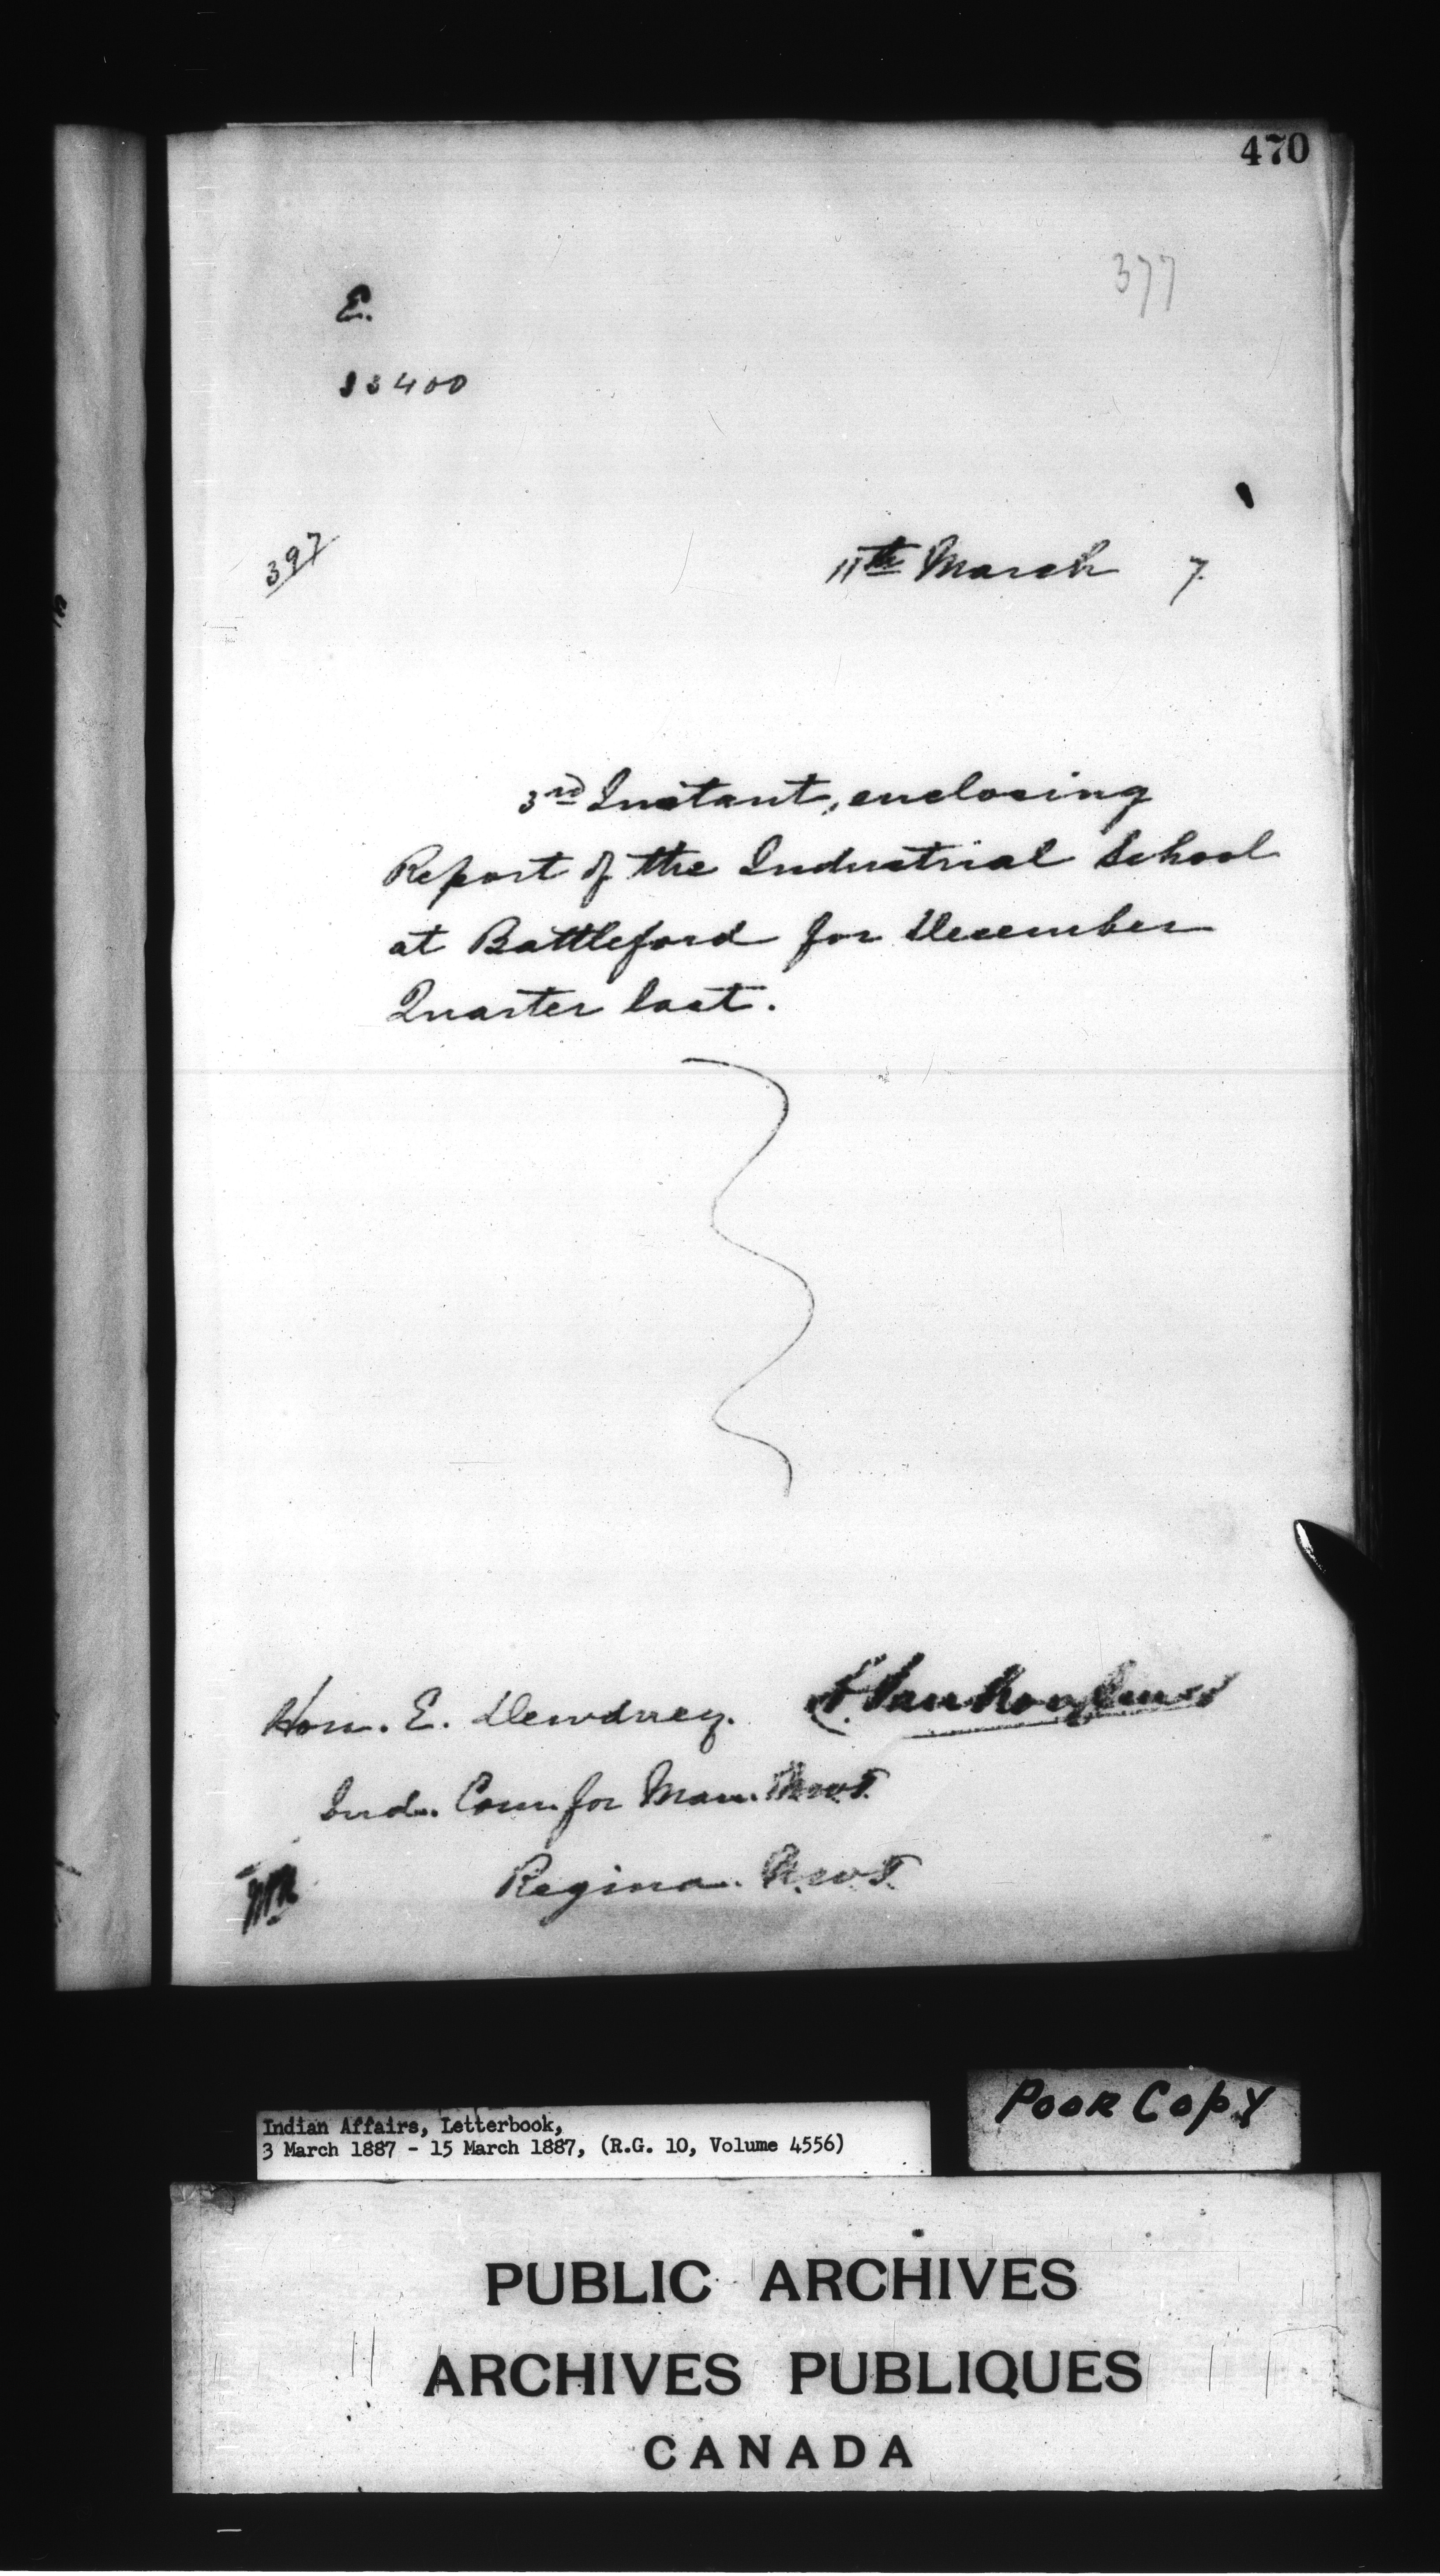 470
377
E.
33400
397
11th March 7.
3rd Instant, enclosing
Report of the Industrial School
at Battleford for December
Quarter last.
Hon. E. Dewdney. L. Vankoughnet
Ind. Com. for Man. & N.W.T.
Regina. N.W.T.
Indian Affairs, Letterbook,
3 March 1887 - 15 March 1887, (R.G. 10, Volume 4556)
POOR COPY
PUBLIC ARCHIVES
ARCHIVES PUBLIQUES
CANADA